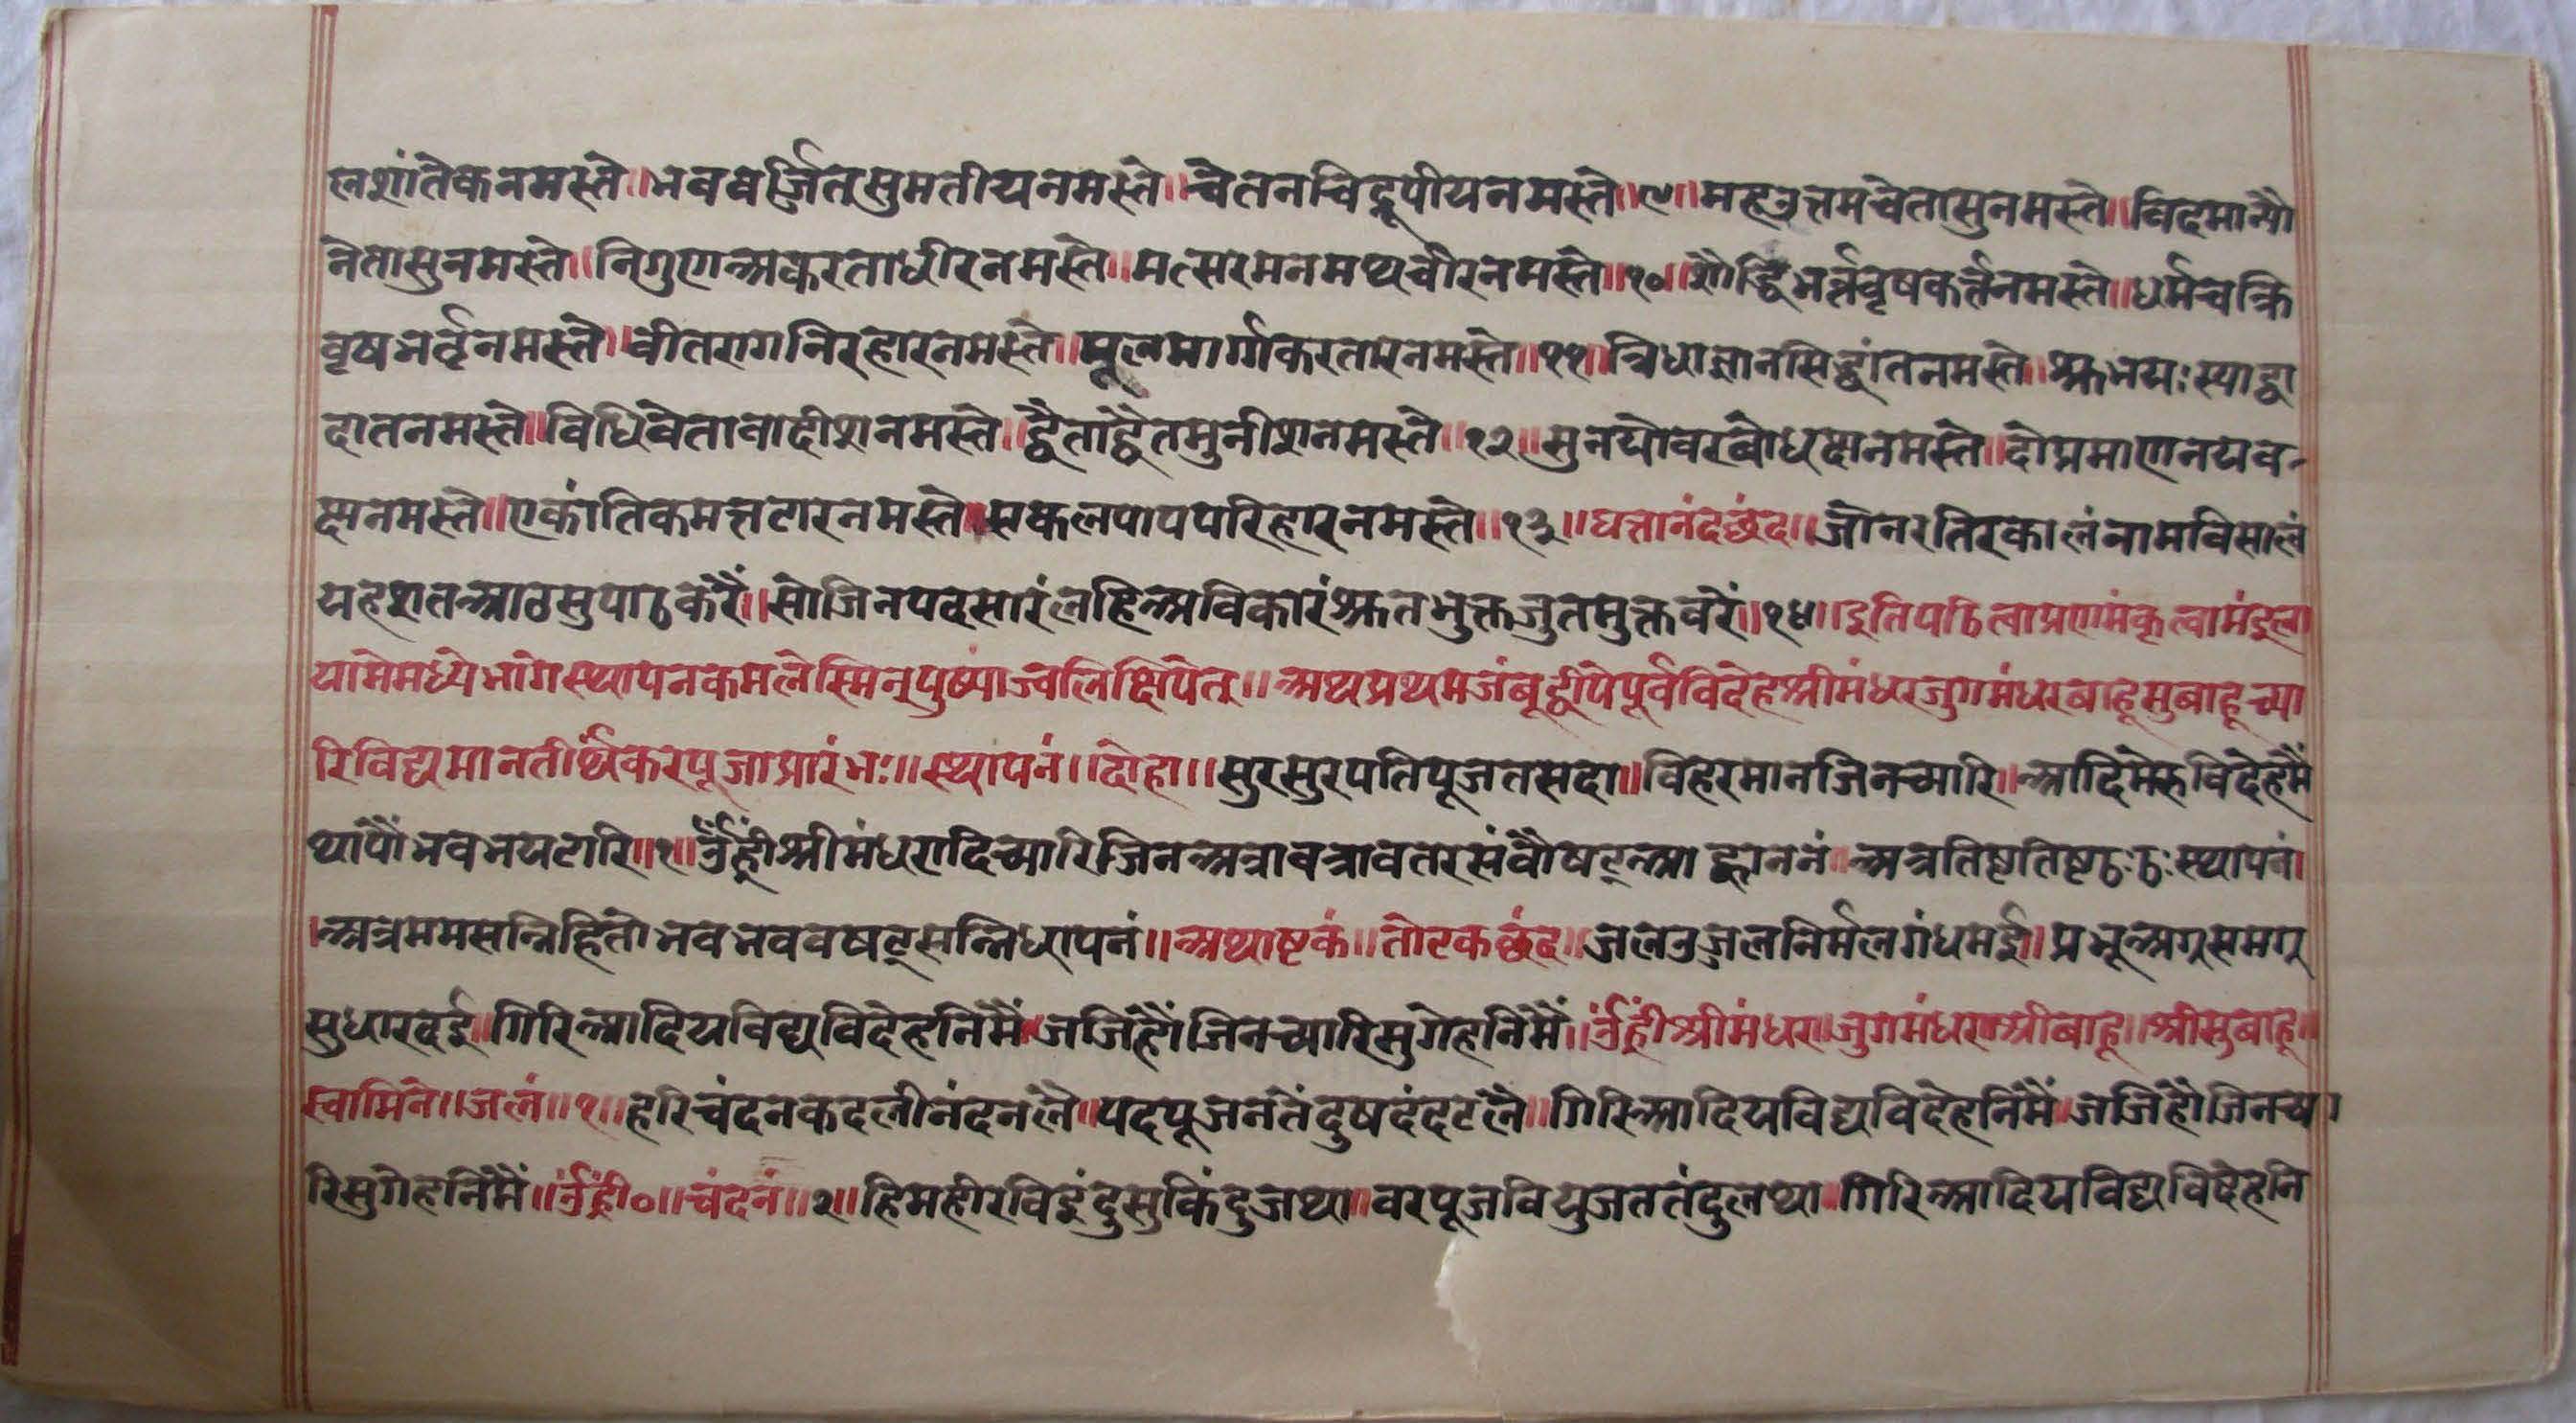 लशांतेकनमस्ते॥भववर्जितसुमतीयनमस्ते॥चेतनचिद्रूपीयनमस्ते॥९॥महउत्तमचेतासुनमस्ते॥विदमान्यौ
नेतासुनमस्ते॥निगुणअकरताधीरनमस्ते॥मत्सरमनमथवीरनमस्ते॥१०॥ भर्त्तृवृषकर्त्तृनमस्ते॥धर्मचक्रि
वृषभर्तृनमस्ते॥वीतरागनिरहारनमस्ते॥मूलमार्गाकरतारनमस्ते॥११॥त्रिधाज्ञानसिद्धांतनमस्ते॥अभयःस्याद्वा
दातनमस्ते॥विधिवेतावादीशनमस्ते॥द्वैताद्वैतमुनीशनमस्ते॥१२॥सुनयौवरबोधष्टानमस्ते॥दोप्रमाणनयव-
ष्टानमस्ते॥एकांतिकमत्तटारनमस्ते॥सकलपापपरिहारनमस्ते॥१३॥घत्तानंदछंद॥जोनरतिरकालंनामविसालं
यहशतआठसुपाठकरैं॥सोजिनपदसारंलहिअविकारंअतभुक्तजुतमुक्तवरैं॥१४॥इतिपठित्वाप्रणमंकृत्वामंडला
यामेमध्येभागेस्थापनकमलेस्मिन्पुष्पांज्वलिक्षिपेत्॥अथप्रथमजंबूद्वीपेपूर्वविदेहश्रीमंधरजुगमंधरबाहूसुबाहूच्या
रिविद्यमानतीर्थंकरपूजाप्रारंभः॥स्थापनं॥दोहा॥सुरसुरपतिपूजतसदा॥विहरमानजिनच्यारि॥आदिमेरुविदेहमैं
थापौंभवभयटारि॥१॥ॐह्रींश्रीमंधरादिच्यारिजिनअत्रावत्रावतरसंवौषट्आह्वाननं॥अत्रतिष्टतिष्टठःठःस्थापनं
।अत्रममसन्निहितोभवभववषट्सन्निधापनं॥अथाष्टकं॥तोटकछंद॥जलउजलनिर्मलगंधमई॥प्रभूअग्रसमग्र
सुधारदई॥गिरिआदियविद्यविदेहनिमैं॥जजिहौंजिनच्यारिसुगेहनिमैं॥ॐह्रींश्रीमंधर॥जुगमंधर॥श्रीबाहू॥श्रीसुबाहू॥
स्वामिने॥जलं॥१॥हरिचंदनकदलीनंदनलै॥पदपूजनतेंदुषदंदटलै॥गिरिआदियविद्यविदेहनिमैं॥जजिहौंजिनच्या
रिसुगेहनिमैं॥ॐह्रीं०॥चंदनं॥२॥हिमहीरविइंदुसुकिंदुजथा॥वरपूजवियुजततंदुलथा॥गिरिआदियविद्यविदेहनि